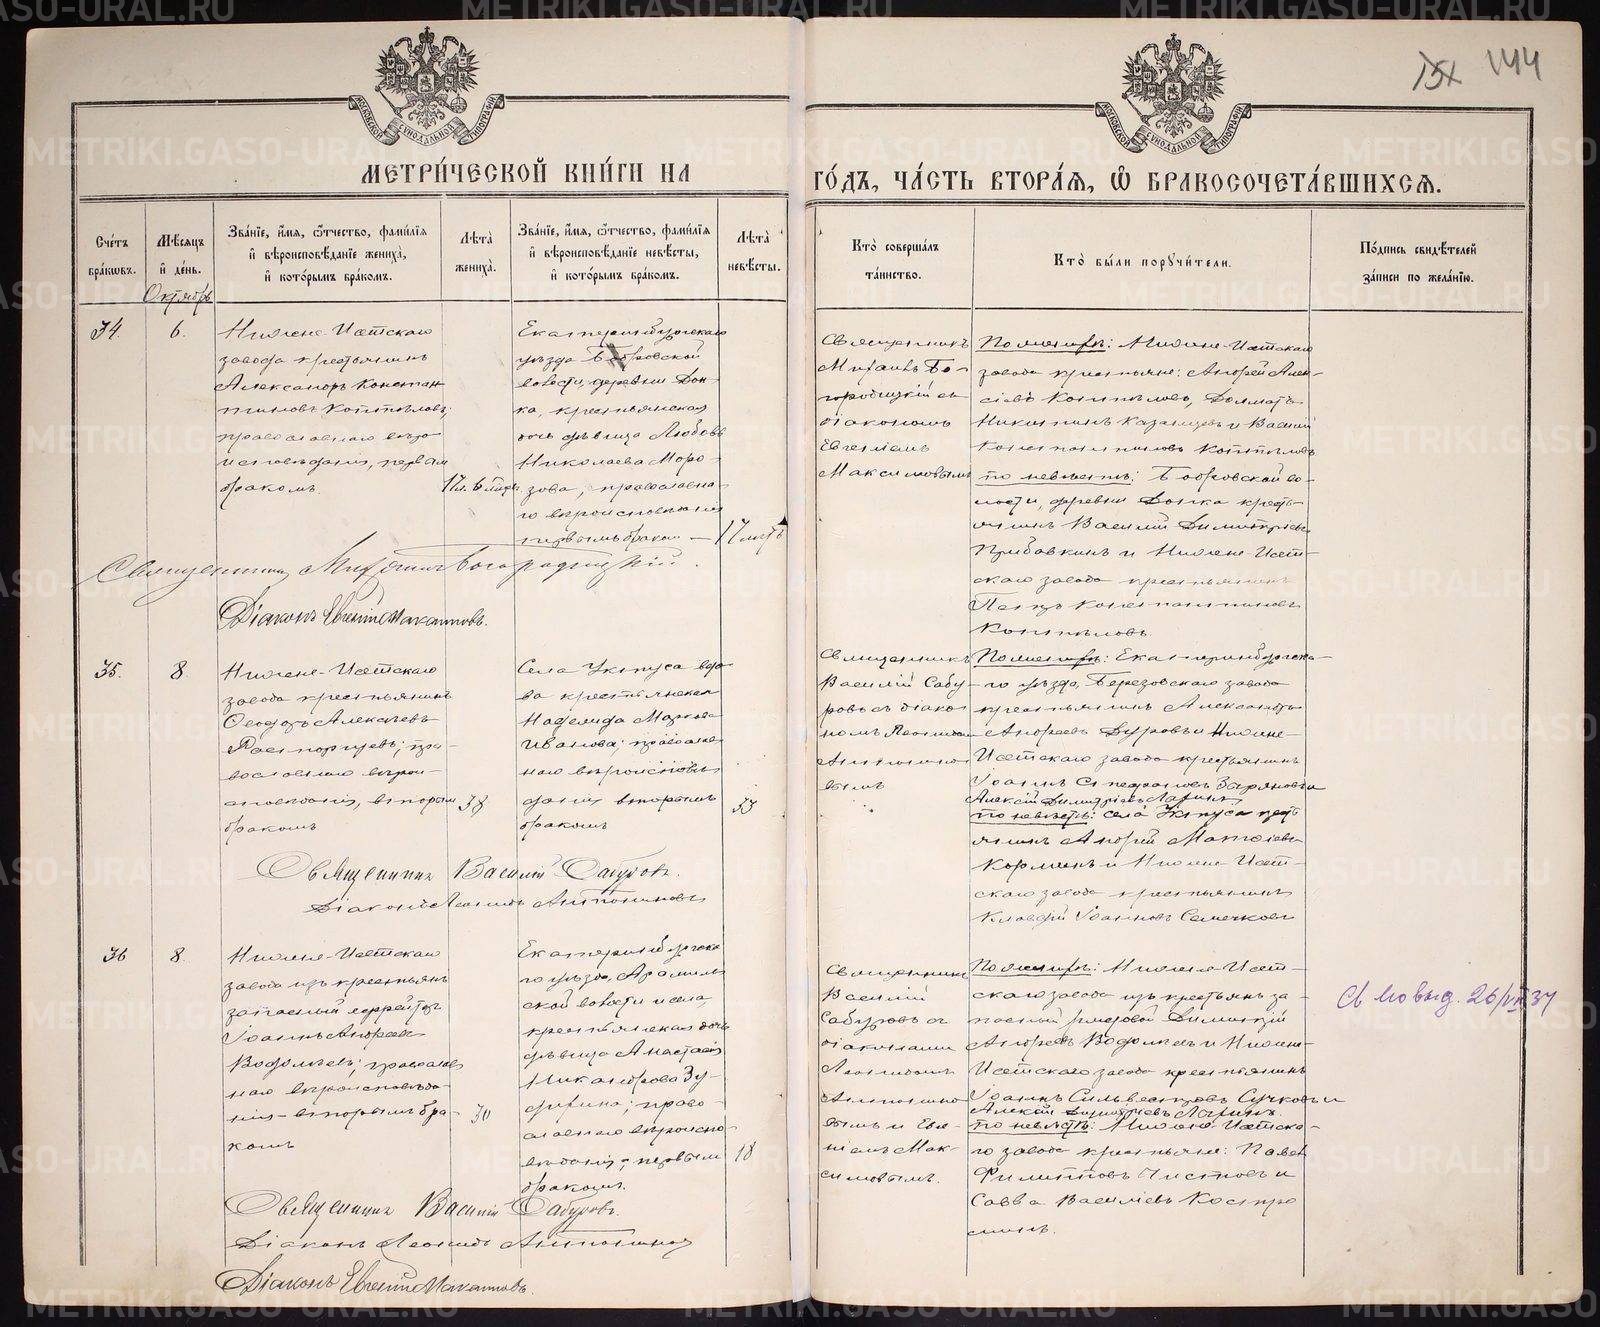 151 144
МЕТРИ́ЧЕСКОЙ КНИ́ГИ НА
ГО́ДЪ, ЧА́СТЬ ВТОРА́Я, Ѽ БРАКОСОЧЕТА́ВШИХСЯ.
Сче́тъ бра́ковъ.
Мѣ́сяцъ и де́нь.
Зва́нїе, и́мя, ѻ́тчество, фами́лїя и вѣроисповѣ́данїе жениха̀, и кото́рымъ бра́комъ.
Лѣ́та жениха̀.
Зва́нїе, и́мя, ѻ́тчество, фами́лїя и вѣроисповѣ́данїе невѣ́сты, и кото́рымъ бра́комъ.
Лѣ́та невѣ́сты.
Кто̀ соверша́лъ та́инство.
Кто̀ бы́ли поручи́тели.
По́дпись свидѣ́телей за́писи по жела́нїю.
Октябрь
34.
6.
Нижне-Исетскаго
завода крестьянинъ
Александръ Констан-
тиновъ Коптѣловъ
православнаго вѣро-
исповѣданія, первым
бракомъ.
17 л. 6 мѣс.
Екатеринбургскаго
уѣзда Бобровской
волости, деревни
крестьянская
дочь дѣвица Любовь
Николаева Моро-
зова, православна-
го вѣроисповѣданія
первымъ браком
17 лѣтъ
Священникъ
Михаилъ Бо-
городицкій съ
діакономъ
Евгеніемъ
Максимовымъ
По женихѣ: Нижне-Исетскаго
завода крестьяне: Андрей Алек-
сѣевъ Коптѣловъ,
Никитинъ и Василій
Константиновъ Коптѣловъ
по невѣстѣ: Бобровской во-
лости, деревни кресть-
янинъ Василій Димитріевъ
и Нижне-Исет-
скаго завода крестьянинъ
Петръ Константиновъ
Коптѣловъ.
Священникъ Михаилъ Богородицкій.
Діаконъ Евгеній Максимовъ.
35.
8.
Нижне-Исетскаго
завода крестьянинъ
Ѳеодоръ Алексѣевъ
Расторгуевъ; пра-
вославнаго вѣрои-
сповѣданія, вторым
бракомъ
38
Села Уктуса вдо-
ва крестьянская
Надежда Маркова
Иванова; православ-
наго вѣроисповѣ-
данія вторымъ
бракомъ
33
Священникъ
Василій Сабу-
ровъ съ діако-
номъ Леонидом
Антонино-
вымъ
По женихѣ: Екатеринбургска-
го уѣзда, Березовскаго завода
крестьянинъ Александръ
Андреевъ Дуровъ и Нижне-
Исетскаго завода крестьянинъ
Іоаннъ Стефановъ Зыряновъ и
Алексій Димитріевъ Ларинъ
по невѣстѣ: села Уктуса крест
янинъ Андрей
Корминъ и Нижне-Исет-
скаго завода крестьянинъ
Клавдій Іоанновъ Семечковъ
Священникъ Василій Сабуровъ.
Діаконъ Леонидъ Антониновъ
36
8.
Нижне-Исетскаго
завода изъ крестьянъ
запасный ефрейтор
Іоаннъ Андреев
Водолѣевъ; православ
наго вѣроисповѣда-
нія - вторымъ бра-
комъ
30
Екатеринбургска-
го уѣзда, Арамиль-
ской волости и села,
крестьянская дочь
дѣвица Анастасія
Никандрова Зу-
право-
славнаго вѣроиспо-
вѣданія; первым
бракомъ.
18
Священникъ
Василій
Сабуровъ съ
діаконами
Леонидомъ
Антонино-
вымъ и Евге-
ніемъ Мак-
симовымъ.
По женихѣ: Нижне-Исет-
скаго завода изъ крестьянъ за-
пасный рядовой Димитрій
Андреевъ Водолѣевъ и Нижне-
Исетскаго завода крестьянинъ
Іоаннъ Сильвестровъ Сучковъ и
Алексій Димитріевъ Ларинъ.
по невѣстѣ: Нижне-Исетска-
го завода крестьяне: Павел
Филипповъ Чистовъ и
Савва Василіевъ Костро-
минъ.
Св во выд. 26/VII 37
Священникъ Василій Сабуровъ.
Діаконъ Леонидъ Антониновъ
Діаконъ Евгеній Максимовъ.
METRIKI.GASO-URAL.RU